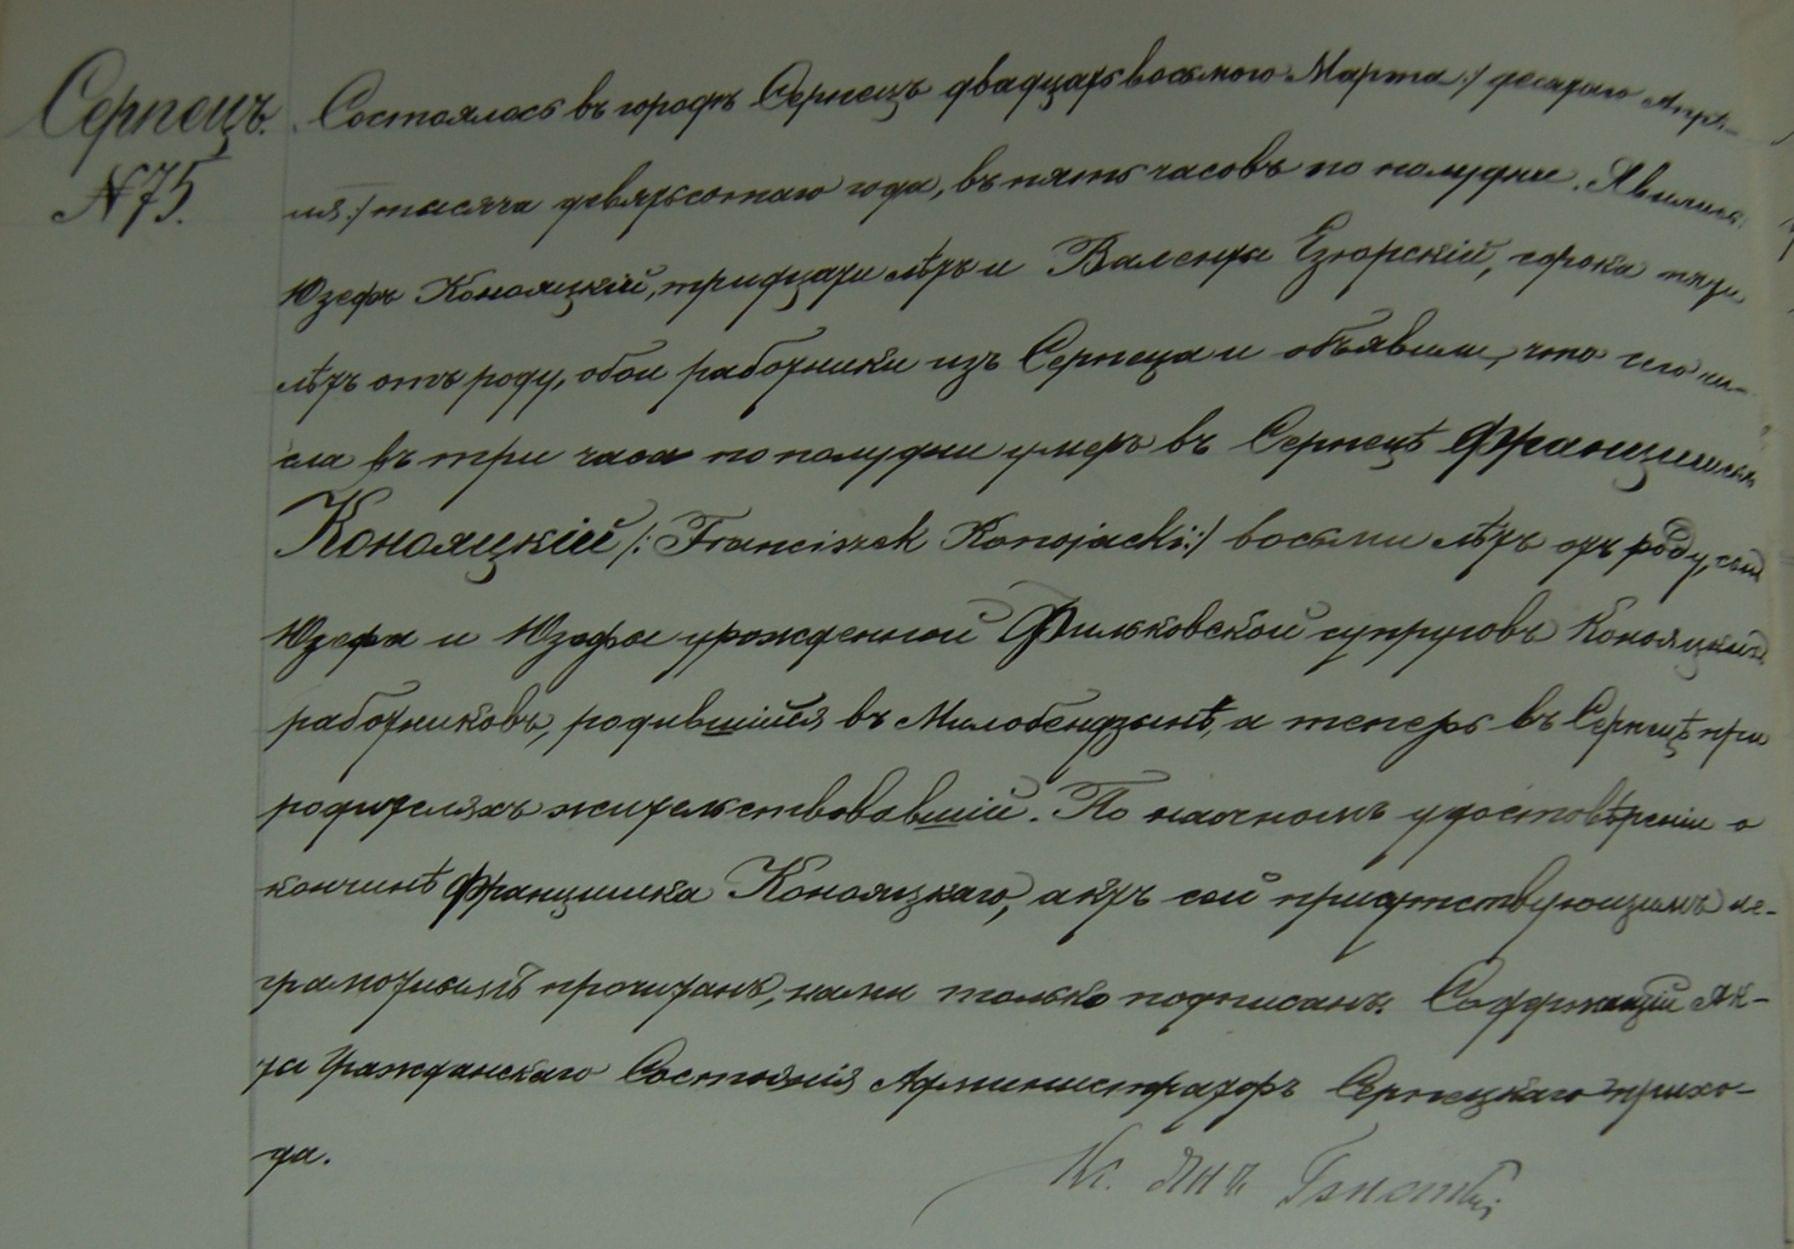 Серпецъ.
№75.
Состоялось въ городѣ Серпецъ двадцать восьмого Марта /: десятаго Апрѣ-
ля :/ тысяча девятьсотаго года, въ пять часовъ по полудни. Явились
Юзефъ Конояцкій, тридцати лѣтъ и Валенты Езіорскій, сорока пяти
лѣтъ отъ роду, обои работники изъ Серпеца и объявили, что сего чи-
сла въ три часа по полудни умеръ въ Серпецѣ Францишекъ
Конояцкій /: Franciszek Konojacki :/ восьми лѣтъ отъ роду, сынъ
Юзефа и Юзефы урожденной Фильковской супруговъ Конояцкихъ
работниковъ, родившійся въ Милобендзынѣ, а теперь въ Серпецѣ при
родителяхъ жительствовавшій. По наочномъ удостовѣреніи о
кончинѣ Францишка Конояцкаго, актъ сей присутствующимъ не-
грамотнымъ прочитанъ, нами только подписанъ. Содержащій Ак-
ты Гражданскаго Состоянія Администраторъ Серпецкаго прихо-
да.
Кс. Янъ